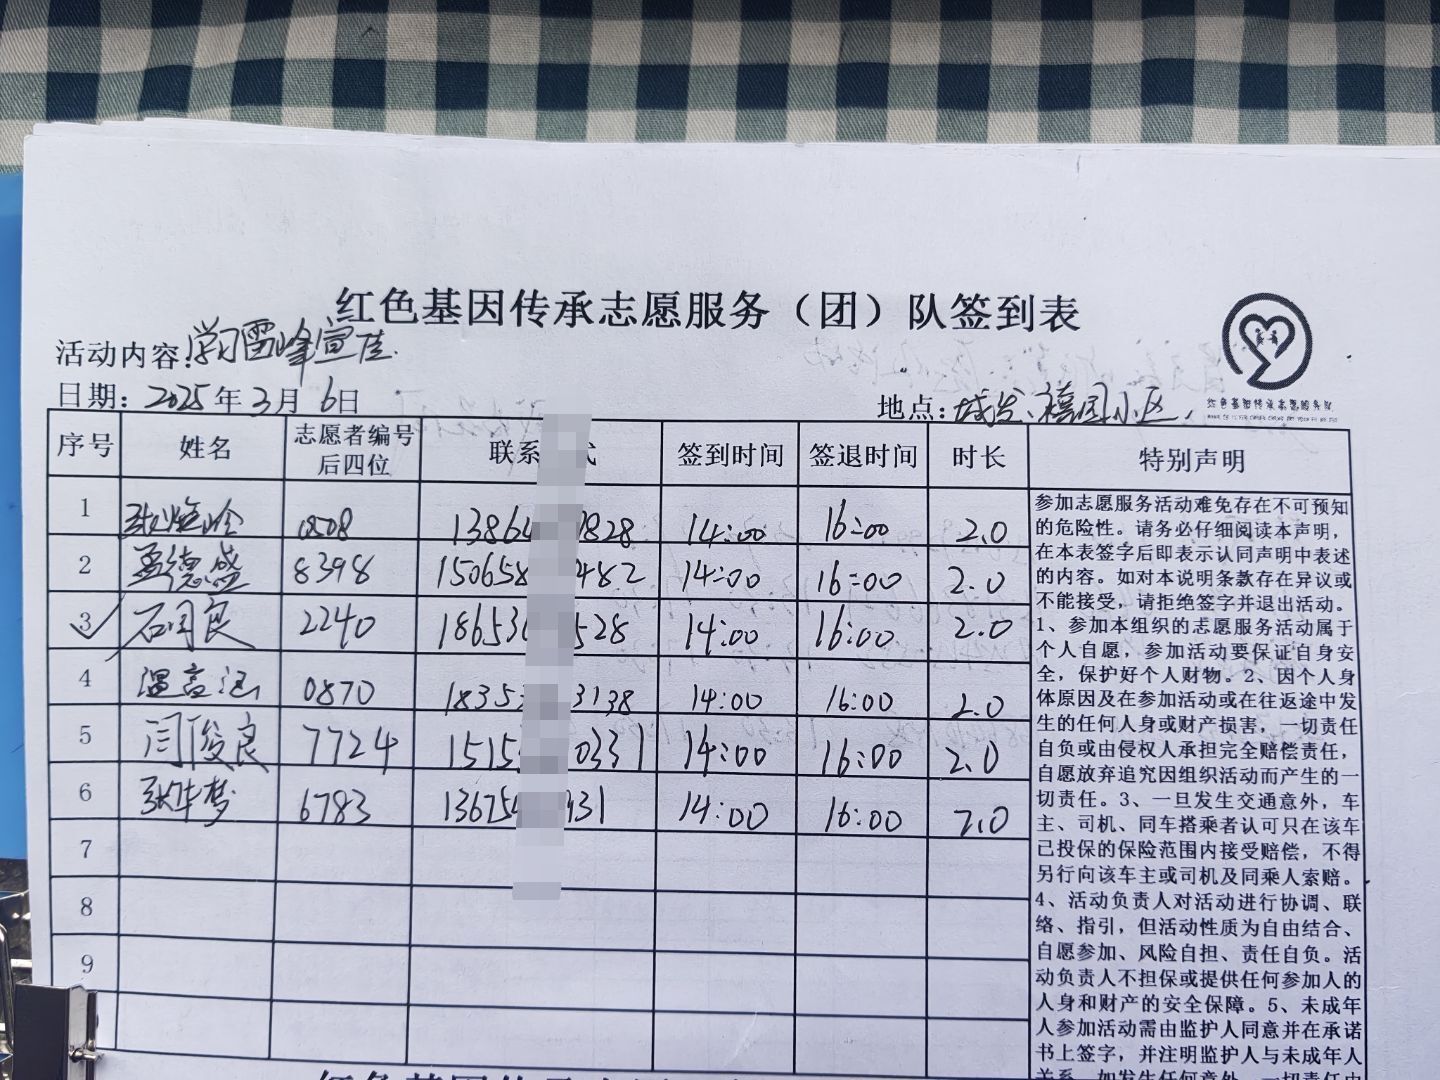 红色基因传承志愿服务（团）队签到表
活动内容:学习雷峰宣传.
日期: 2025年3月6日
地点: 禧园小区.
红色基因传承志愿服务队
序号 姓名 志愿者编号后四位 联系 式 签到时间 签退时间 时长 特别声明
1 0508 13864 3828 14:00 16:00 2.0
2 孟德盛 8398 150658 482 14:00 16:00 2.0
3 石国良 2240 18653 528 14:00 16:00 2.0
4 0870 1835 3138 14:00 16:00 2.0
5 闫俊良 7724 1515 0331 14:00 16:00 2.0
6 张华梦 6783 13675 931 14:00 16:00 2.0
7
8
9
参加志愿服务活动难免存在不可预知
的危险性。请务必仔细阅读本声明，
在本表签字后即表示认同声明中表述
的内容。如对本说明条款存在异议或
不能接受，请拒绝签字并退出活动。
1、参加本组织的志愿服务活动属于
个人自愿，参加活动要保证自身安
全，保护好个人财物。2、因个人身
体原因及在参加活动或在往返途中发
生的任何人身或财产损害，一切责任
自负或由侵权人承担完全赔偿责任，
自愿放弃追究因组织活动而产生的一
切责任。3、一旦发生交通意外，车
主、司机、同车搭乘者认可只在该车
已投保的保险范围内接受赔偿，不得
另行向该车主或司机及同乘人索赔。
4、活动负责人对活动进行协调、联
络、指引，但活动性质为自由结合、
自愿参加、风险自担、责任自负。活
动负责人不担保或提供任何参加人的
人身和财产的安全保障。5、未成年
人参加活动需由监护人同意并在承诺
书上签字，并注明监护人与未成年人
关系，如发生任何意外，一切责任由